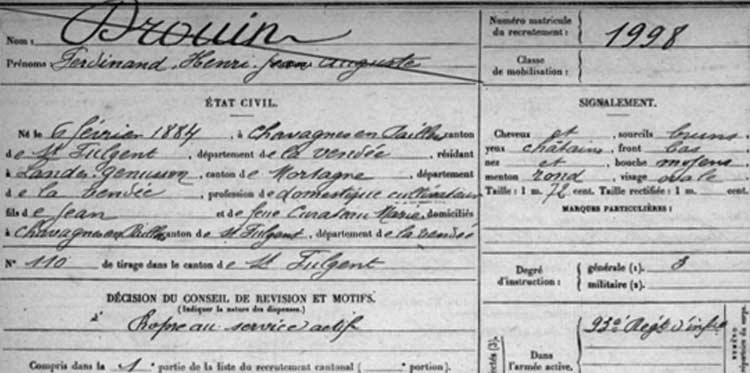 Nom : Drouin
Prénoms : Ferdinand, Henri Jean Auguste
ÉTAT CIVIL.
Né le 6 février 1884, à Chavagnes en Paillers canton
de St Fulgent, département de la Vendée, résidant
à Landes Genusson, canton de Mortagne, département
de la Vendée, profession de domestique cultivateur
fils de Jean et de feue Marie, domiciliés
à Chavagnes en Paillers canton de St Fulgent, département de la Vendée
N° 110 de tirage dans le canton de St Fulgent
DÉCISION DU CONSEIL DE REVISION ET MOTIFS.
(Indiquer la nature des dispenses.)
au service actif
Compris dans la 1e partie de la liste du recrutement cantonal ( portion).
Numéro matricule
du recrutement : 1998
Classe
de mobilisation :
SIGNALEMENT.
Cheveux et , sourcils bruns
yeux châtains, front bas
nez et , bouche moyens
menton rond, visage ovale
Taille : 1 m. 72 cent. Taille rectifiée : 1 m. cent.
MARQUES PARTICULIÈRES :
Degré
d'instruction :
générale (1). 3
militaire (2).
Dans
l'armée active.
93e Régt d'infie